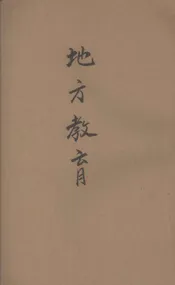 地方教育